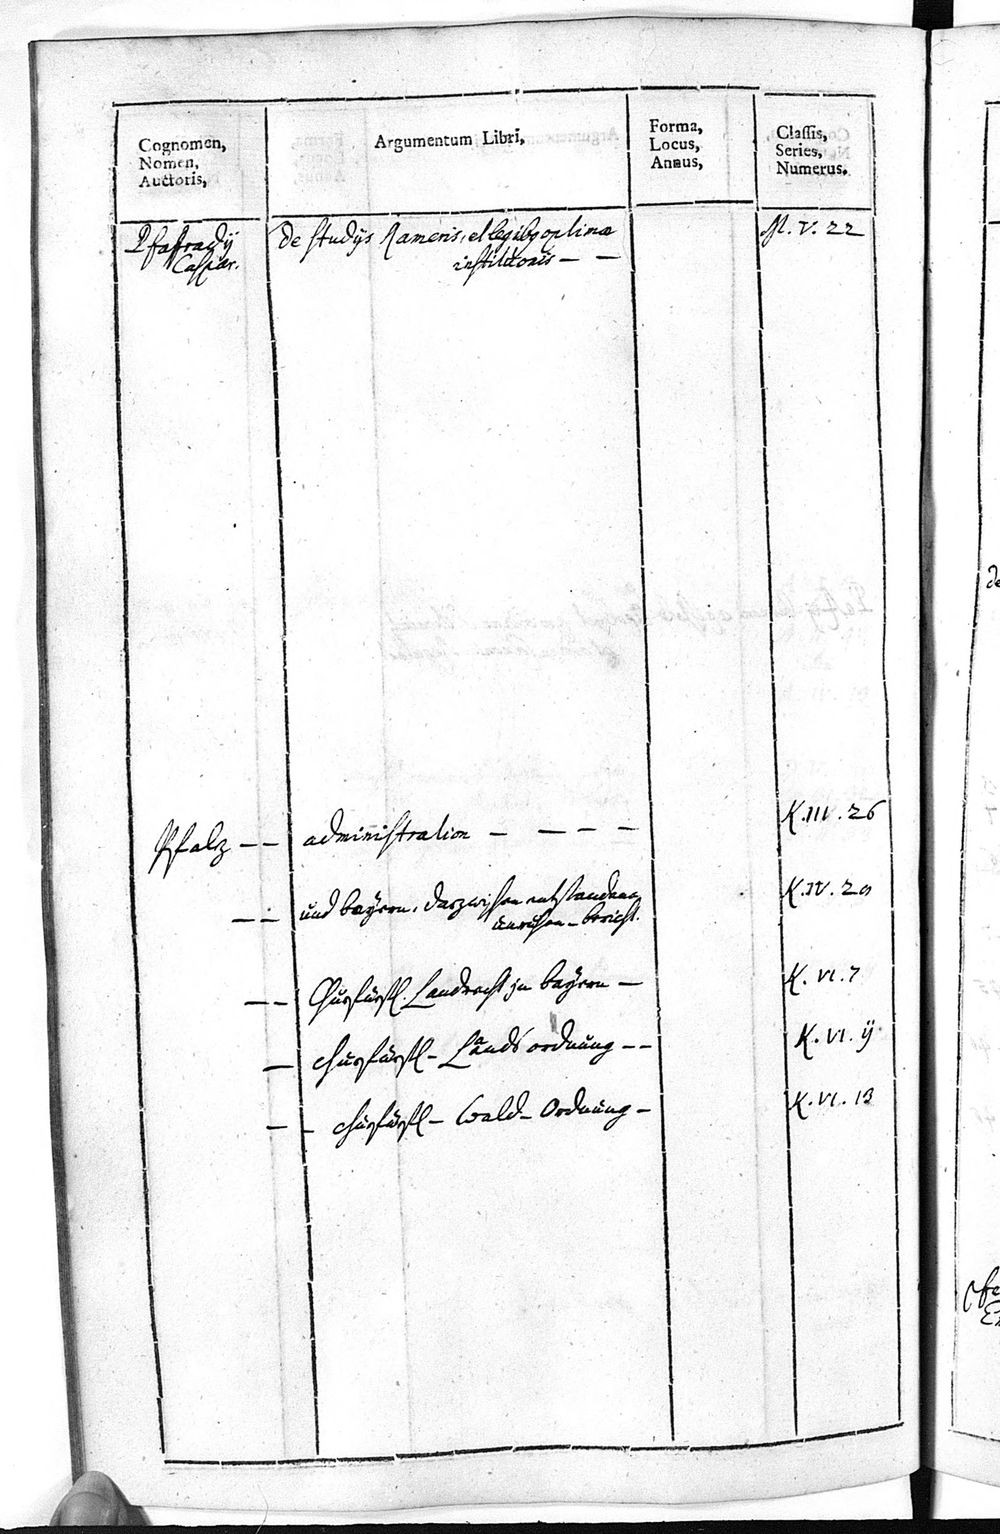 Cognomen,
Nomen,
Auctoris,
Argumentum Libri,
Forma,
Locus,
Annus,
Classis,
Series,
Numerus.
Pfafradÿ
Caspar.
de studÿs Rameris, et legibg optimæ
institutionis — —
M. V. 22
Pfalz — — administration — — — —
K. III. 26
— — und bayern, darzwischen entstandene
unruhen - bericht.
K. IV. 20
— — Churfürstl. Landrecht in bayern —
K. VI. 7
— churfürstl - Lands ordnung — —
K. VI. ÿ
— — churfürstl — Wald - Ordnung —
K. VI. 13